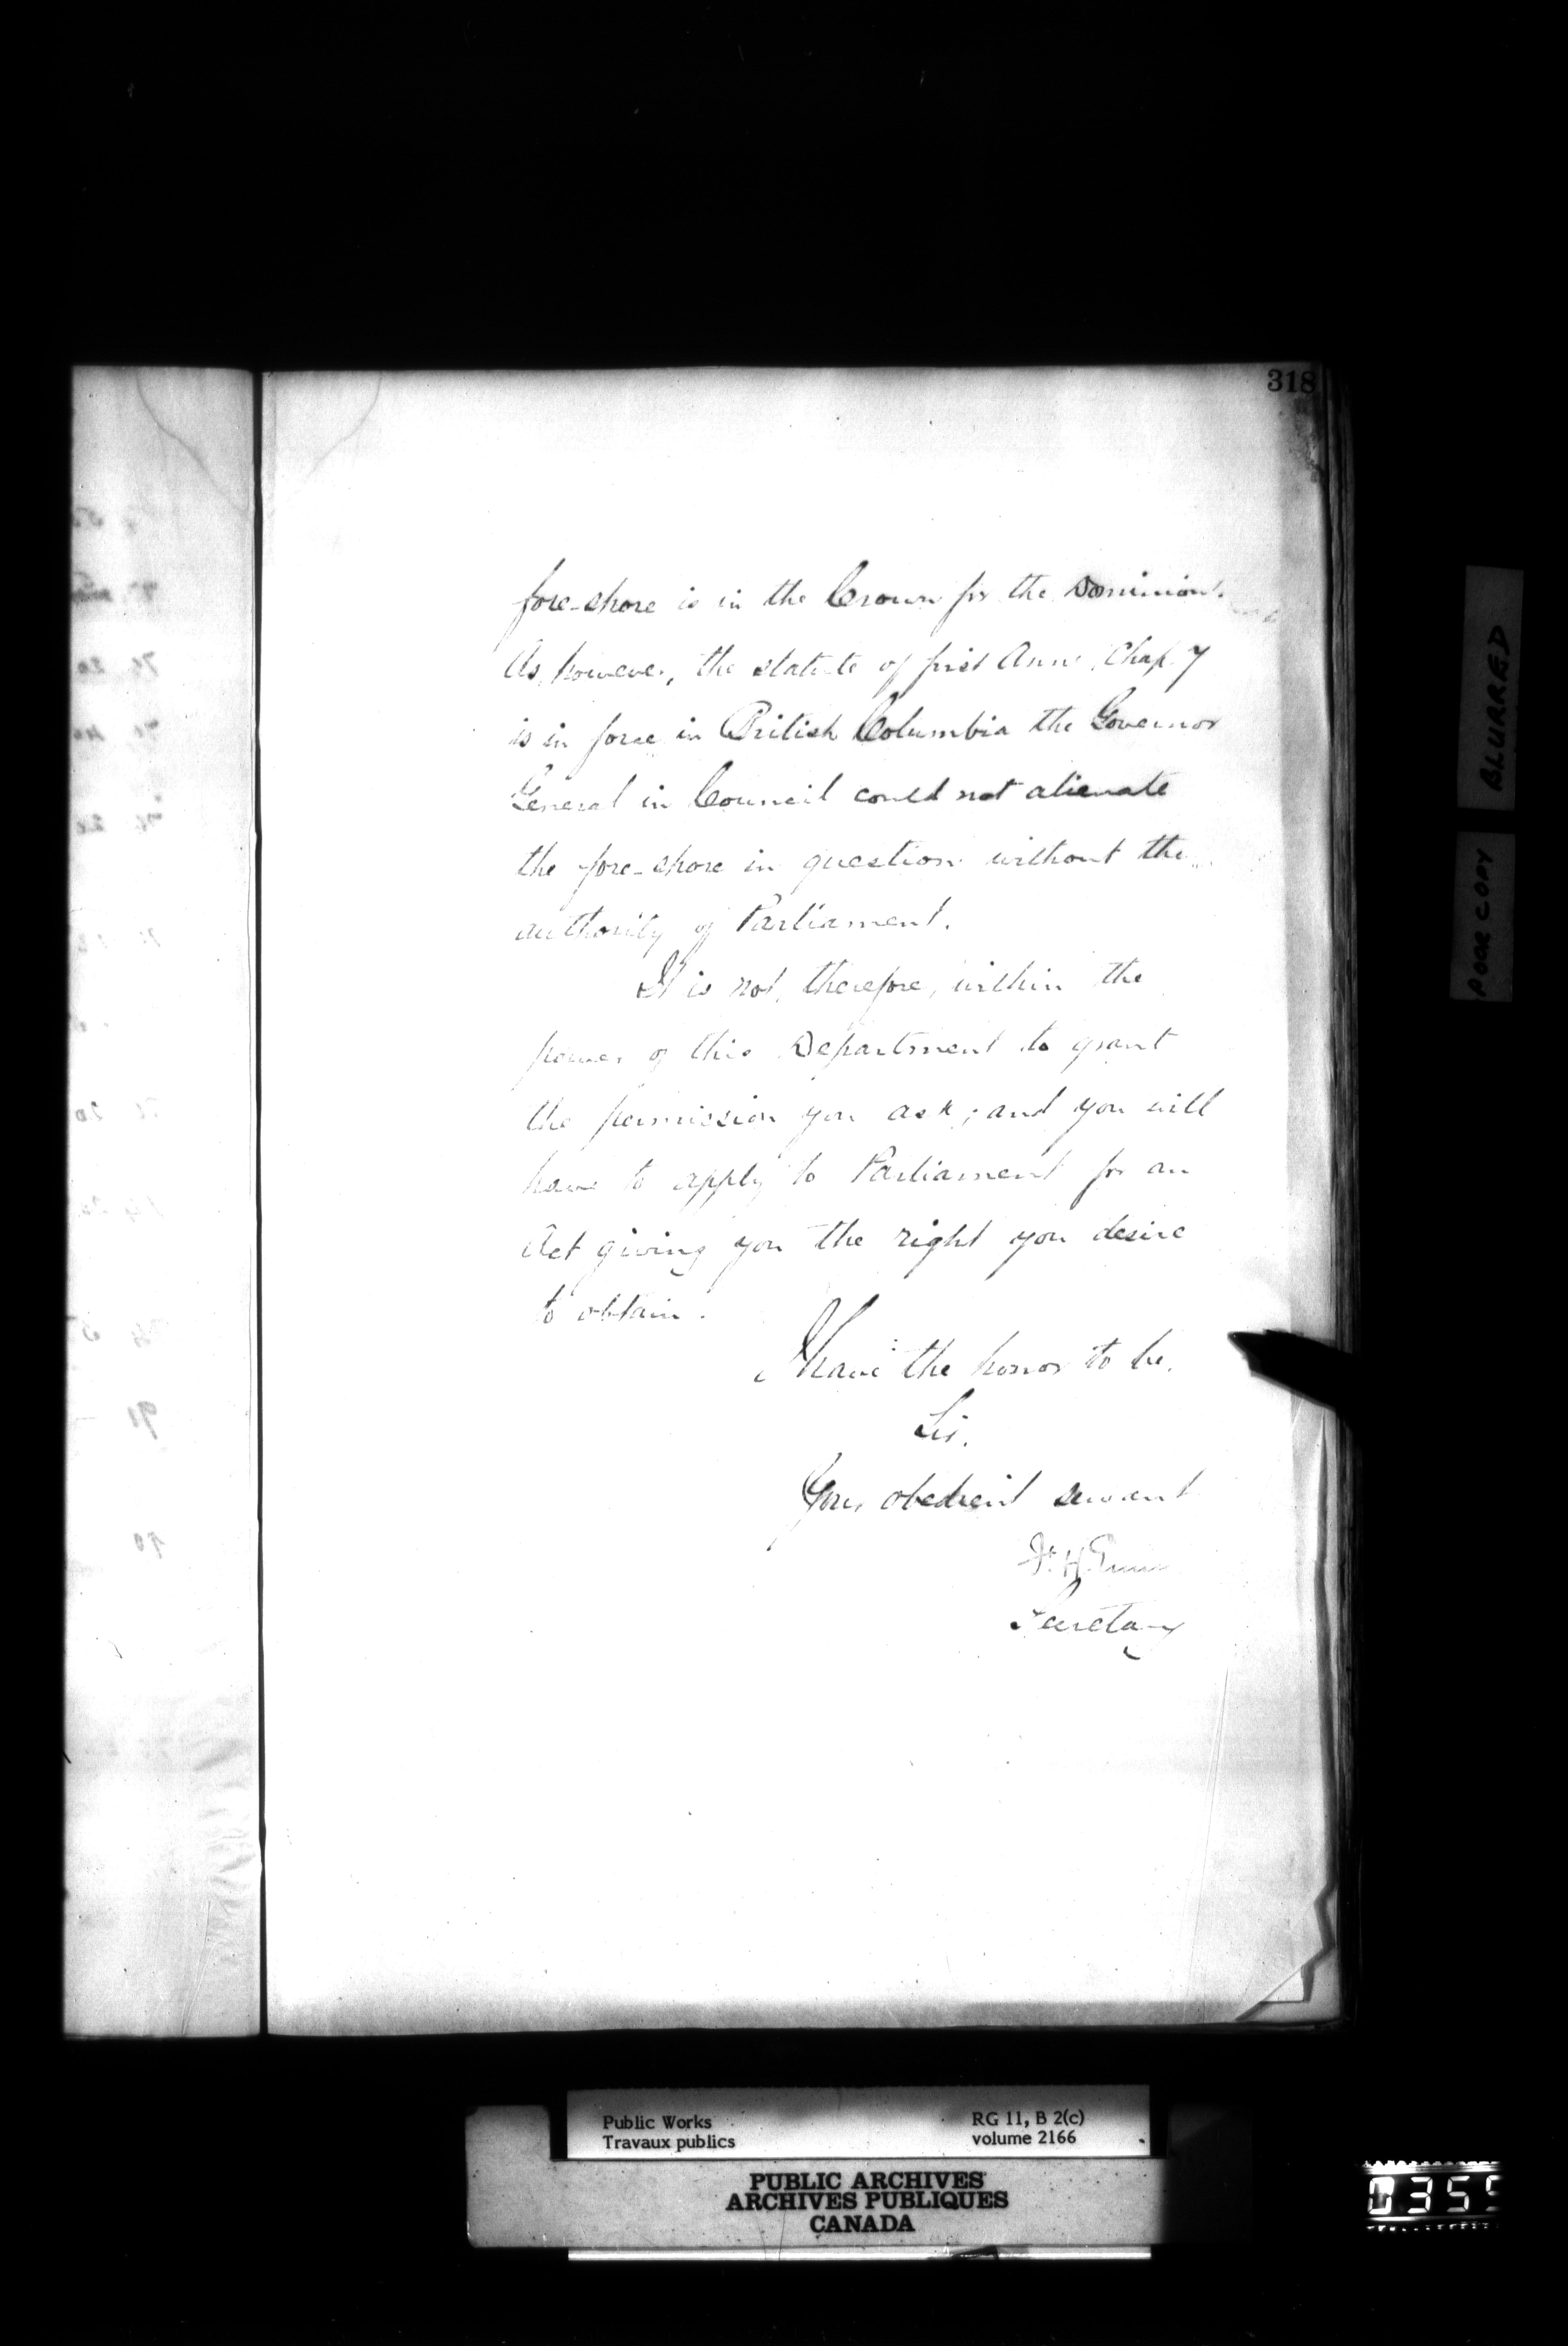 318
fore-shore is in the Crown for the Dominion.
As, however, the statute of first Anne, Chap. 7
is in force in British Columbia the Governor
General in Council could not alienate
the fore-shore in question without the
authority of Parliament.
It is not, therefore, within the
power of this Department to grant
the permission you ask; and you will
have to apply to Parliament for an
Act giving you the right you desire
to obtain.
I have the honor to be,
Sir,
Your obedient servant
Secretary
BLURRED
POOR COPY
Public Works
Travaux publics
RG 11, B 2(c)
volume 2166
PUBLIC ARCHIVES
ARCHIVES PUBLIQUES
CANADA
0355